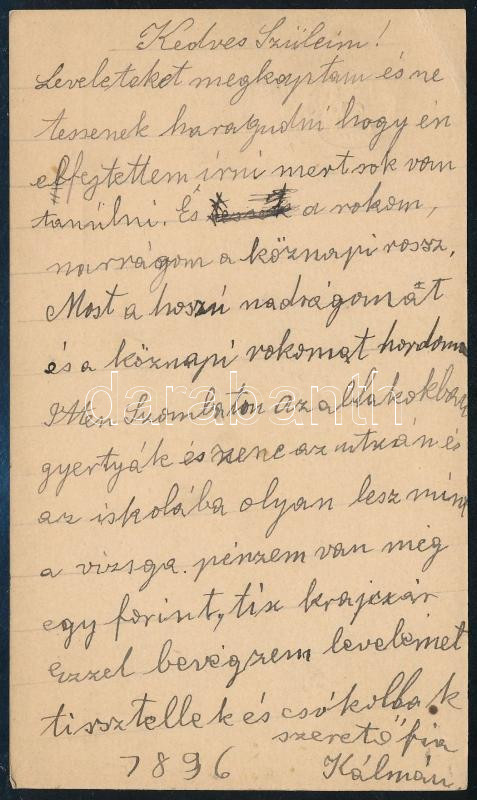 Kedves Szüleim!
Leveleteket megkaptam és ne
tessenek haragudni hogy én
elfejtettem irni mert sok van
tanúlni. És a rokom,
narrágom a köznapi rossz.
Most a hoszú nadrágomát
és a köznapi rokomat hordom
Szombaton az ablakokban
gyertyák és zene az utzán és
az iskolába olyan lesz mint
a vizsga. pénzem van még
egy forint, tiz krajczár
Ezzel bevégzem levelemet
tissztellek és csókollak
szerető fia
1896 Kálmán.
darabanth